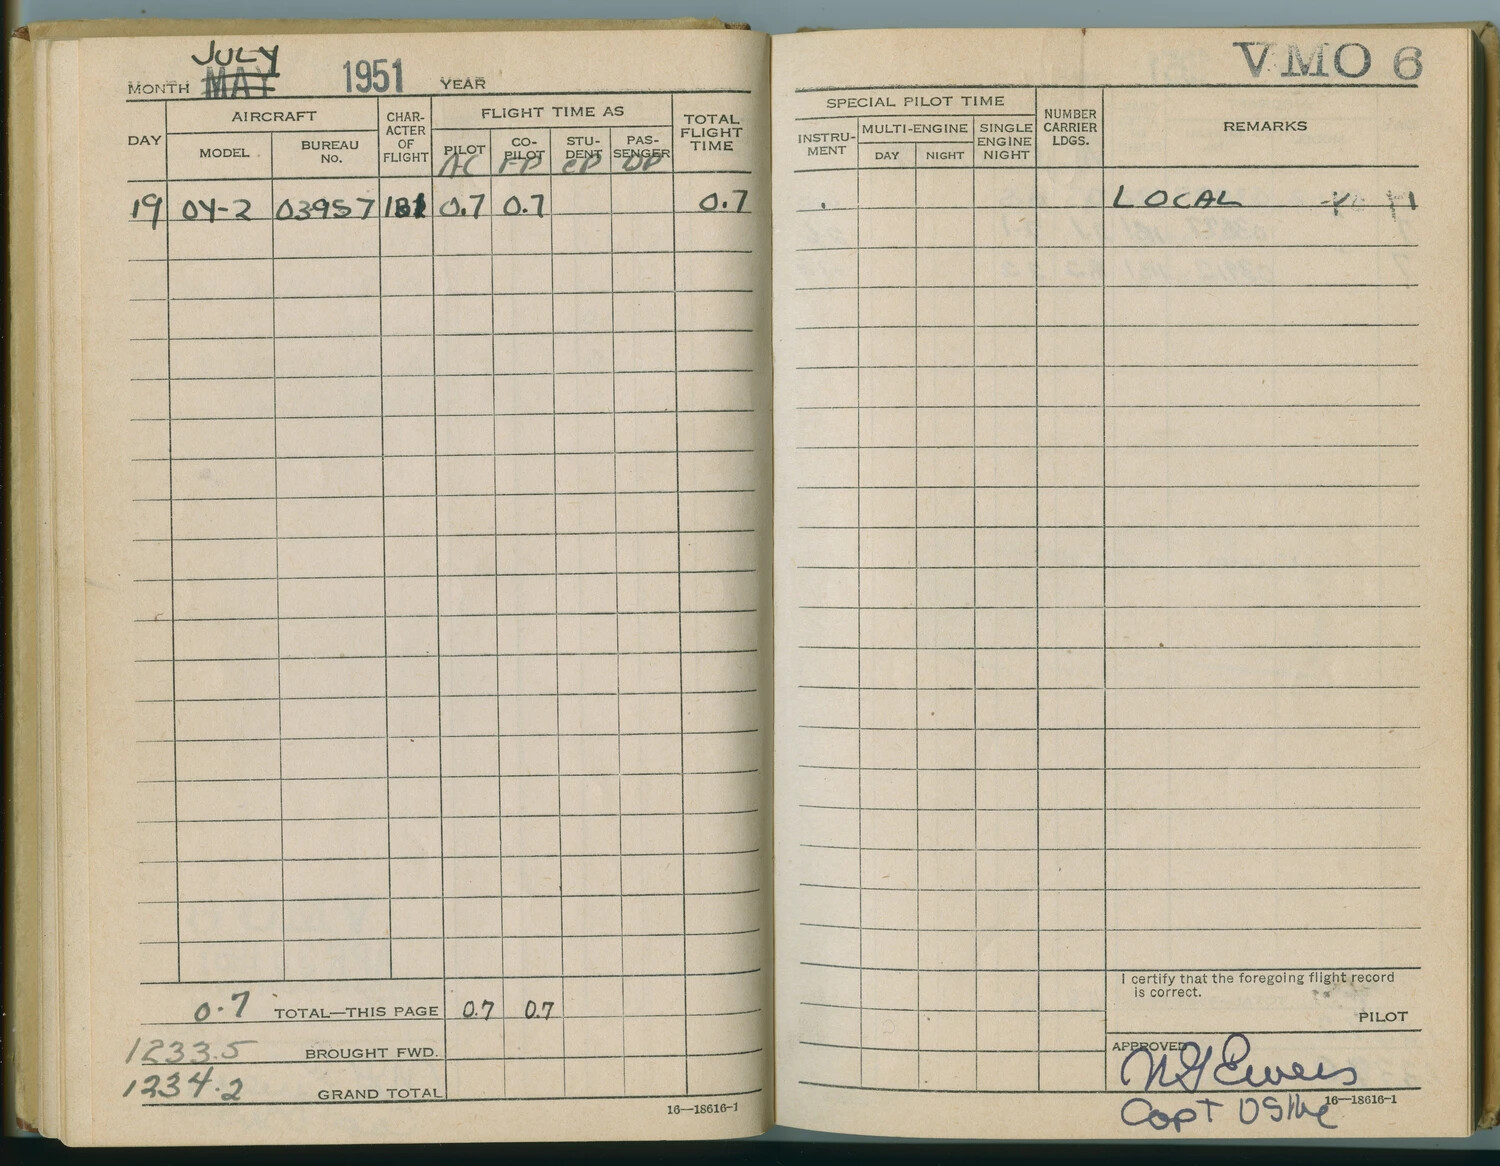 JULY
MONTH MAY 1951 YEAR
DAY
AIRCRAFT
MODEL
BUREAU
No.
CHAR-
ACTER
OF
FLIGHT
FLIGHT TIME AS
PILOT
AC
CO-
PILOT
FP
STU-
DENT
CP
PAS-
SENGER
DP
TOTAL
FLIGHT
TIME
19 OY-2 03957 1B1 0.7 0.7 0.7
0.7 TOTAL—THIS PAGE 0.7 0.7
1233.5 BROUGHT FWD.
1234.2 GRAND TOTAL
16—18616-1
VMO 6
SPECIAL PILOT TIME
INSTRU-
MENT
MULTI-ENGINE
DAY
NIGHT
SINGLE
ENGINE
NIGHT
NUMBER
CARRIER
LDGS.
REMARKS
LOCAL
I certify that the foregoing flight record
is correct.
PILOT
APPROVED
Ewers
16—18616-1
Capt USMC